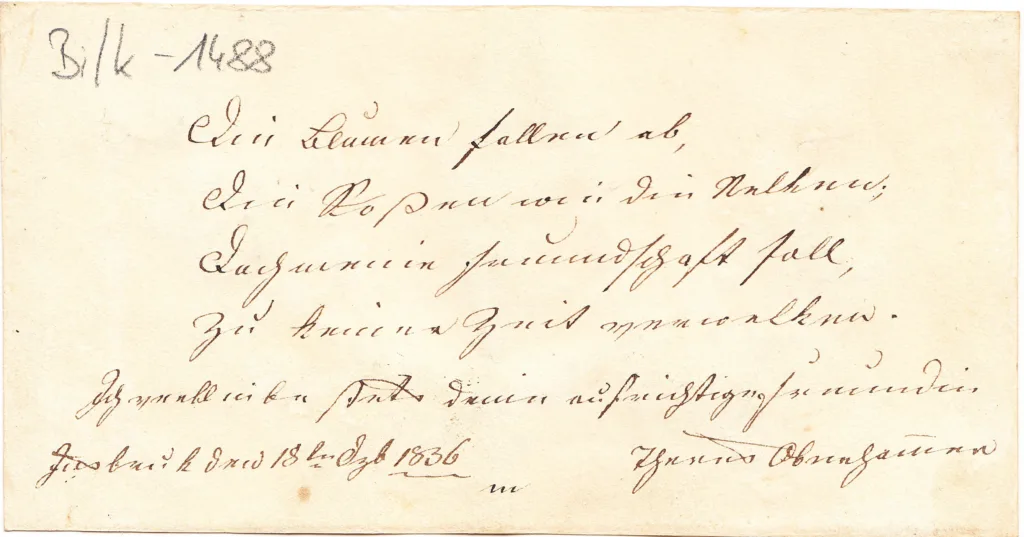 Bi/k - 1488
Die Blumen fallen ab,
Die Roßen wie die Nelken;
Doch meine Freundschaft soll,
Zu keiner Zeit verwelken.
Ich verbleibe stets deine aufrichtige Freundin
Insbruk den 18ten Dzb 1836 Theres Obwehammer
m